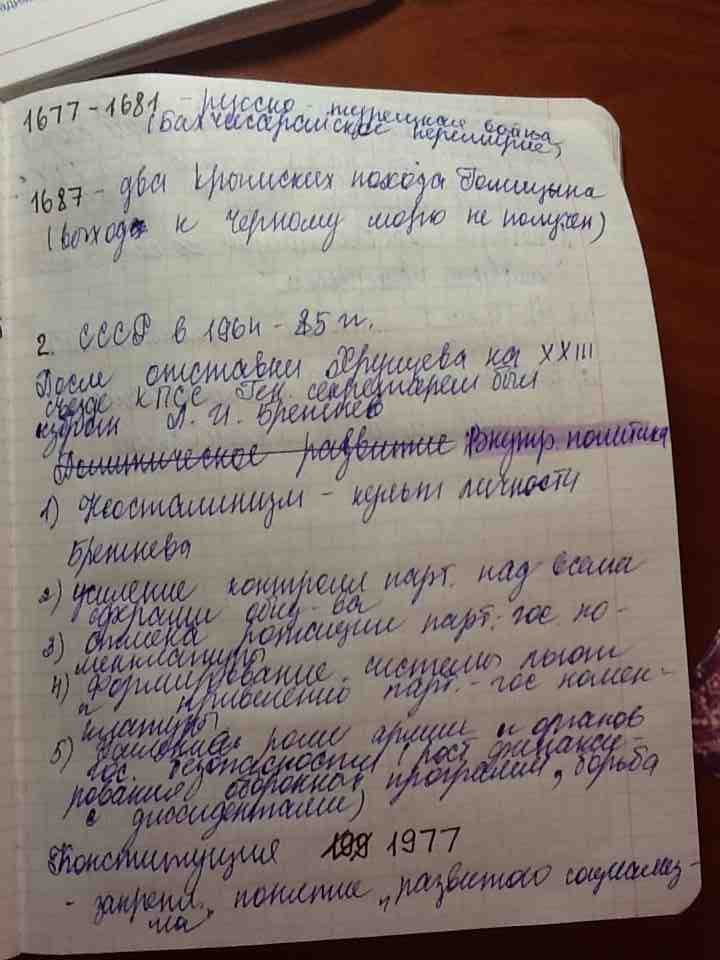 1677-1681 - русско - турецкая война
(Бахчисарайское перемирие)
1687 - два Крымских похода Голицына
(выход к Черному морю не получен)
2. СССР в 1964 - 85 гг.
После отставки Хрущева на XXIII
съезде КПСС Ген. секретарем был
избран Л. И. Брежнев
Политическое развитие Внутр. политика
1) Неосталинизм - культ личности
Брежнева
2) усиление контроля парт. над всеми
сферами общ-ва
3) отмена ротации парт.-гос. но-
менклатуры
4) Формирование системы льгот
и привилегий парт.-гос номен-
клатуры
5) усиление роли армии и органов
гос. безопасности (рост финанси-
рования оборонных программ, борьба
с диссидентами)
Конституция 1977
- закрепл. понятие "развитого социализ-
ма